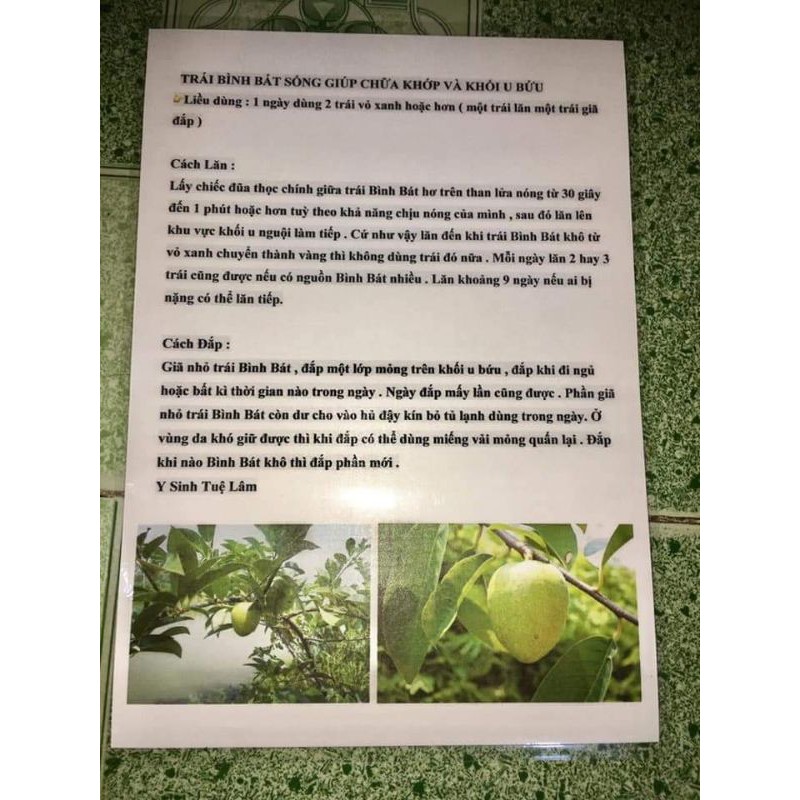 TRÁI BÌNH BÁT SÔNG GIÚP CHỮA KHỚP VÀ KHỐI U BỨU
Liều dùng : 1 ngày dùng 2 trái vỏ xanh hoặc hơn ( một trái lăn một trái giã
đắp )
Cách Lăn :
Lấy chiếc đũa thọc chính giữa trái Bình Bát hơ trên than lửa nóng từ 30 giây
đến 1 phút hoặc hơn tuỳ theo khả năng chịu nóng của mình , sau đó lăn lên
khu vực khối u nguội làm tiếp . Cứ như vậy lăn đến khi trái Bình Bát khô từ
vỏ xanh chuyển thành vàng thì không dùng trái đó nữa . Mỗi ngày lăn 2 hay 3
trái cũng được nếu có nguồn Bình Bát nhiều . Lăn khoảng 9 ngày nếu ai bị
nặng có thể lăn tiếp.
Cách Đắp :
Giã nhỏ trái Bình Bát , đắp một lớp mỏng trên khối u bứu , đắp khi đi ngủ
hoặc bất kì thời gian nào trong ngày . Ngày đắp mấy lần cũng được . Phần giã
nhỏ trái Bình Bát còn dư cho vào hủ đậy kín bỏ tủ lạnh dùng trong ngày. Ở
vùng da khó giữ được thì khi đắp có thể dùng miếng vải mỏng quấn lại . Đắp
khi nào Bình Bát khô thì đắp phần mới .
Y Sinh Tuệ Lâm